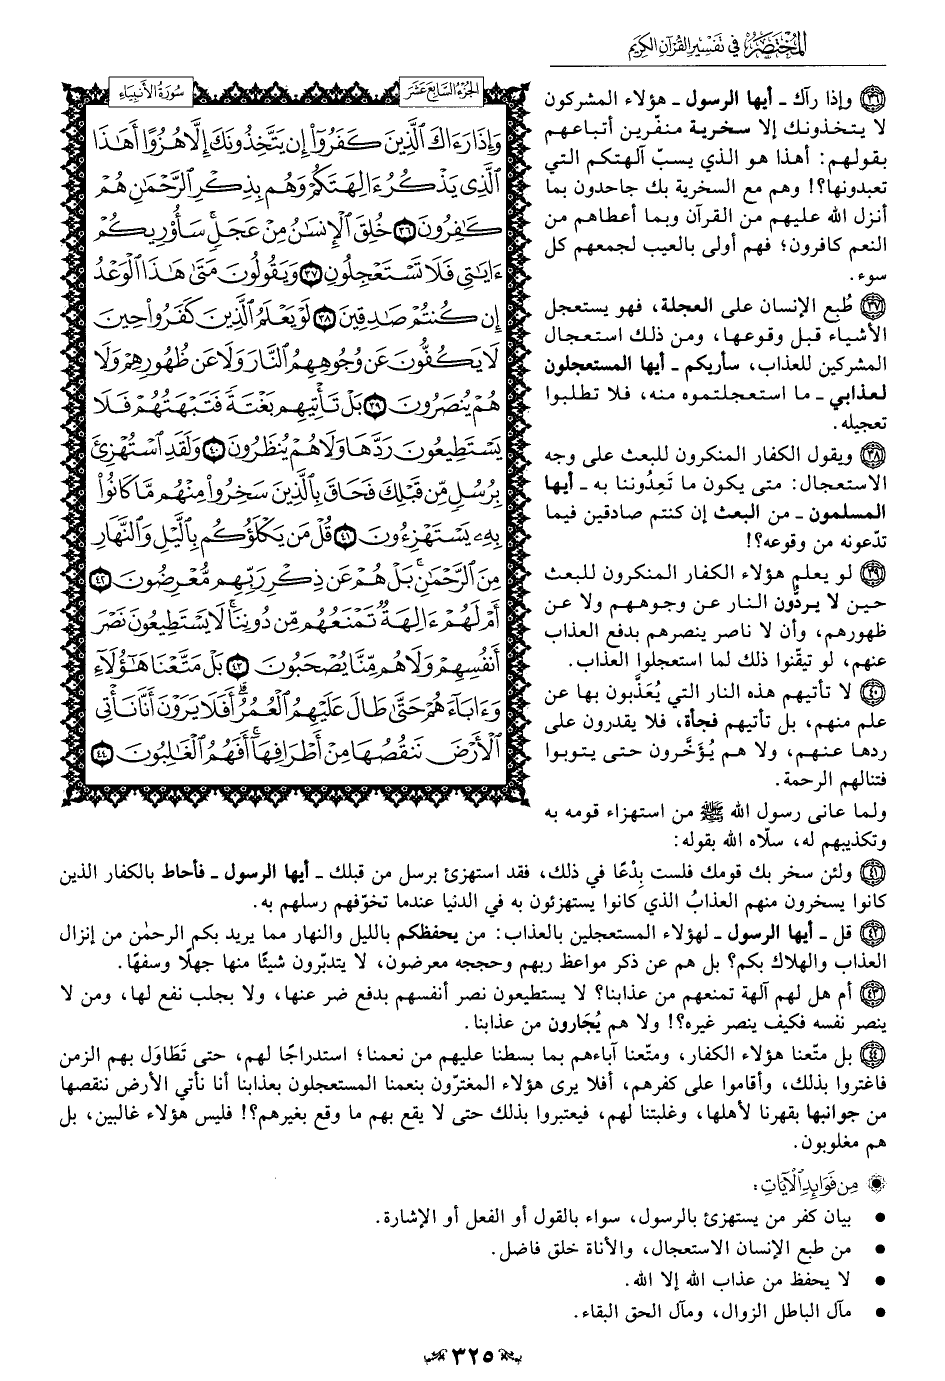 المختصر في تفسير القرآن الكريم
الجزء السابع عشر
سورة الأنبياء
وَإِذَا رَءَاكَ ٱلَّذِينَ كَفَرُوٓا۟ إِن يَتَّخِذُونَكَ إِلَّا هُزُوًا أَهَٰذَا
ٱلَّذِى يَذْكُرُ ءَالِهَتَكُمْ وَهُم بِذِكْرِ ٱلرَّحْمَٰنِ هُمْ
كَٰفِرُونَ ٣٦ خُلِقَ ٱلْإِنسَٰنُ مِنْ عَجَلٍ سَأُو۟رِيكُمْ
ءَايَٰتِى فَلَا تَسْتَعْجِلُونِ ٣٧ وَيَقُولُونَ مَتَىٰ هَٰذَا ٱلْوَعْدُ
إِن كُنتُمْ صَٰدِقِينَ ٣٨ لَوْ يَعْلَمُ ٱلَّذِينَ كَفَرُوا۟ حِينَ
لَا يَكُفُّونَ عَن وُجُوهِهِمُ ٱلنَّارَ وَلَا عَن ظُهُورِهِمْ وَلَا
هُمْ يُنصَرُونَ ٣٩ بَلْ تَأْتِيهِم بَغْتَةً فَتَبْهَتُهُمْ فَلَا
يَسْتَطِيعُونَ رَدَّهَا وَلَا هُمْ يُنظَرُونَ ٤٠ وَلَقَدِ ٱسْتُهْزِئَ
بِرُسُلٍ مِّن قَبْلِكَ فَحَاقَ بِٱلَّذِينَ سَخِرُوا۟ مِنْهُم مَّا كَانُوا۟
بِهِۦ يَسْتَهْزِءُونَ ٤١ قُلْ مَن يَكْلَؤُكُم بِٱلَّيْلِ وَٱلنَّهَارِ
مِنَ ٱلرَّحْمَٰنِ بَلْ هُمْ عَن ذِكْرِ رَبِّهِم مُّعْرِضُونَ ٤٢
أَمْ لَهُمْ ءَالِهَةٌ تَمْنَعُهُم مِّن دُونِنَا لَا يَسْتَطِيعُونَ نَصْرَ
أَنفُسِهِمْ وَلَا هُم مِّنَّا يُصْحَبُونَ ٤٣ بَلْ مَتَّعْنَا هَٰٓؤُلَآءِ
وَءَابَآءَهُمْ حَتَّىٰ طَالَ عَلَيْهِمُ ٱلْعُمُرُ أَفَلَا يَرَوْنَ أَنَّا نَأْتِى
ٱلْأَرْضَ نَنقُصُهَا مِنْ أَطْرَافِهَآ أَفَهُمُ ٱلْغَٰلِبُونَ ٤٤
٣٦ وإذا رآك ـ أيها الرسول ـ هؤلاء المشركون
لا يتخذونك إلا سخرية منفّرين أتباعهم
بقولهم: أهذا هو الذي يسبّ آلهتكم التي
تعبدونها؟! وهم مع السخرية بك جاحدون بما
أنزل الله عليهم من القرآن وبما أعطاهم من
النعم كافرون؛ فهم أولى بالعيب لجمعهم كل
سوء.
٣٧ طُبع الإنسان على العجلة، فهو يستعجل
الأشياء قبل وقوعها، ومن ذلك استعجال
المشركين للعذاب، سأريكم ـ أيها المستعجلون
لعذابي ـ ما استعجلتموه منه، فلا تطلبوا
تعجيله.
٣٨ ويقول الكفار المنكرون للبعث على وجه
الاستعجال: متى يكون ما تَعِدُوننا به ـ أيها
المسلمون ـ من البعث إن كنتم صادقين فيما
تدّعونه من وقوعه؟!
٣٩ لو يعلم هؤلاء الكفار المنكرون للبعث
حين لا يردُّون النار عن وجوههم ولا عن
ظهورهم، وأن لا ناصر ينصرهم بدفع العذاب
عنهم، لو تيقّنوا ذلك لما استعجلوا العذاب.
٤٠ لا تأتيهم هذه النار التي يُعَذَّبون بها عن
علم منهم، بل تأتيهم فجأة، فلا يقدرون على
ردها عنهم، ولا هم يُؤَخَّرون حتى يتوبوا
فتنالهم الرحمة.
ولما عانى رسول الله ﷺ من استهزاء قومه به
وتكذيبهم له، سلّاه الله بقوله:
٤١ ولئن سخر بك قومك فلست بِدْعًا في ذلك، فقد استهزئ برسل من قبلك ـ أيها الرسول ـ فأحاط بالكفار الذين
كانوا يسخرون منهم العذابُ الذي كانوا يستهزئون به في الدنيا عندما تخوّفهم رسلهم به.
٤٢ قل ـ أيها الرسول ـ لهؤلاء المستعجلين بالعذاب: من يحفظكم بالليل والنهار مما يريد بكم الرحمٰن من إنزال
العذاب والهلاك بكم؟ بل هم عن ذكر مواعظ ربهم وحججه معرضون، لا يتدبّرون شيئًا منها جهلًا وسفهًا.
٤٣ أم هل لهم آلهة تمنعهم من عذابنا؟ لا يستطيعون نصر أنفسهم بدفع ضر عنها، ولا بجلب نفع لها، ومن لا
ينصر نفسه فكيف ينصر غيره؟! ولا هم يُجَارون من عذابنا.
٤٤ بل متّعنا هؤلاء الكفار، ومتّعنا آباءهم بما بسطنا عليهم من نعمنا؛ استدراجًا لهم، حتى تَطَاوَل بهم الزمن
فاغتروا بذلك، وأقاموا على كفرهم، أفلا يرى هؤلاء المغترّون بنعمنا المستعجلون بعذابنا أنا نأتي الأرض ننقصها
من جوانبها بقهرنا لأهلها، وغلبتنا لهم، فيعتبروا بذلك حتى لا يقع بهم ما وقع بغيرهم؟! فليس هؤلاء غالبين، بل
هم مغلوبون.
من فوائد الآيات:
• بيان كفر من يستهزئ بالرسول، سواء بالقول أو الفعل أو الإشارة.
• من طبع الإنسان الاستعجال، والأناة خلق فاضل.
• لا يحفظ من عذاب الله إلا الله.
• مآل الباطل الزوال، ومآل الحق البقاء.
٣٢٥